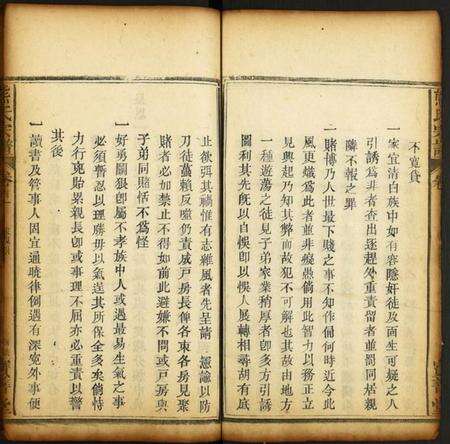 不寬貸
一家宜清白族中如有容隱奸徒及面生可疑之人
引誘為非者查出逐趕外重責留者並罰同居親
隣不報之罪
一賭博乃人世最下賤之事不知作俑何時近今此
風更熾為此者並非癡愚倘用此智力以務正立
見興起乃知其弊而故犯不可解也其故由地方
一種遊蕩之徒見子弟家業稍厚者即多方引誘
圖利其先既以自悞即以悞人展轉相尋胡有底
止欲弭其禍惟有志雜風者先呈請 憲諭以防
刀徒藉賴反噬仍責成戸房長俾各束各房見聚
賭者必如禁止不得如前此避嫌不問或戸房與
子弟同賭恬不為怪
一好勇鬭狠即屬不孝族中人或遇最易生氣之事
必須暫忍以理勝毋以氣逞其所保全多矣倘恃
力行兇貽累親長即或事理不屈亦必重責以警
其後
一讀書及管事人因宜通曉律例遇有深寃外事便
熊氏宗譜